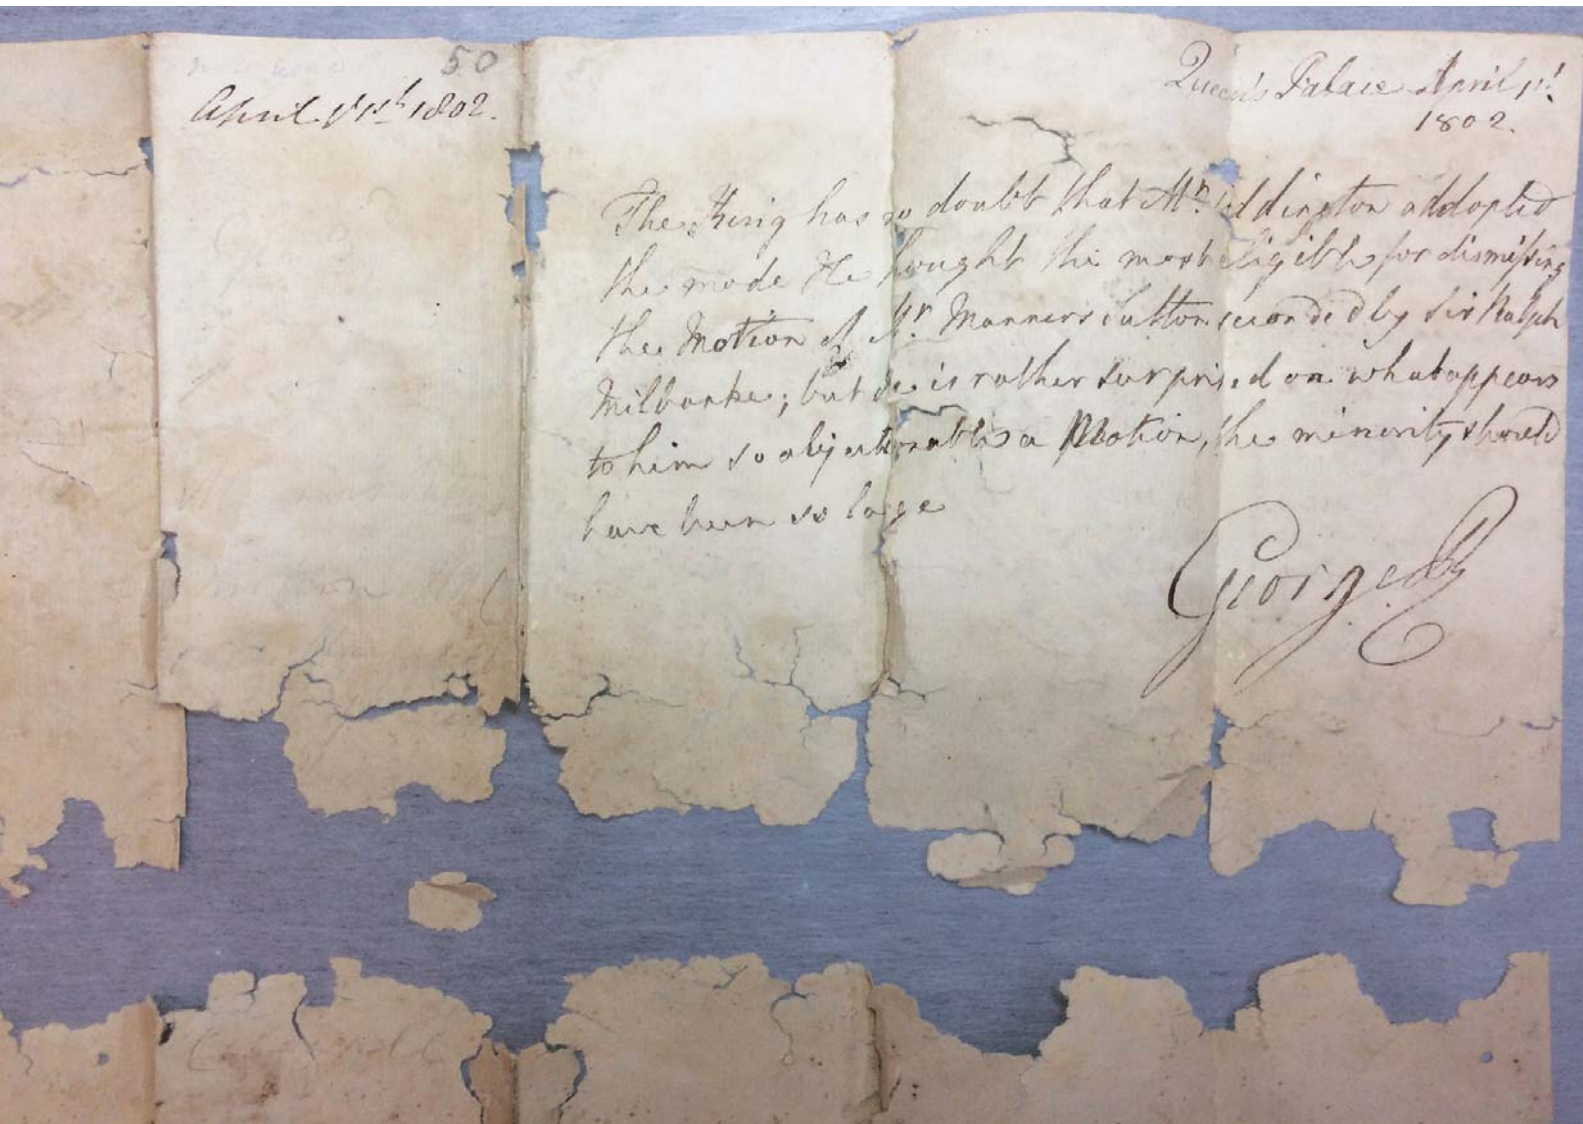 50
April 1st 1802.
Queen's Palace April 1st.
1802.
The King has no doubt that Mr. Addington addopted
the mode He thought the most eligible for dismissing
the Motion of Mr. Manners Sutton seconded by Sir Ralph
Milbanke; but He is rather surprised on what appears
to him so objectionable a Motion, the minority should
have been so large
George R